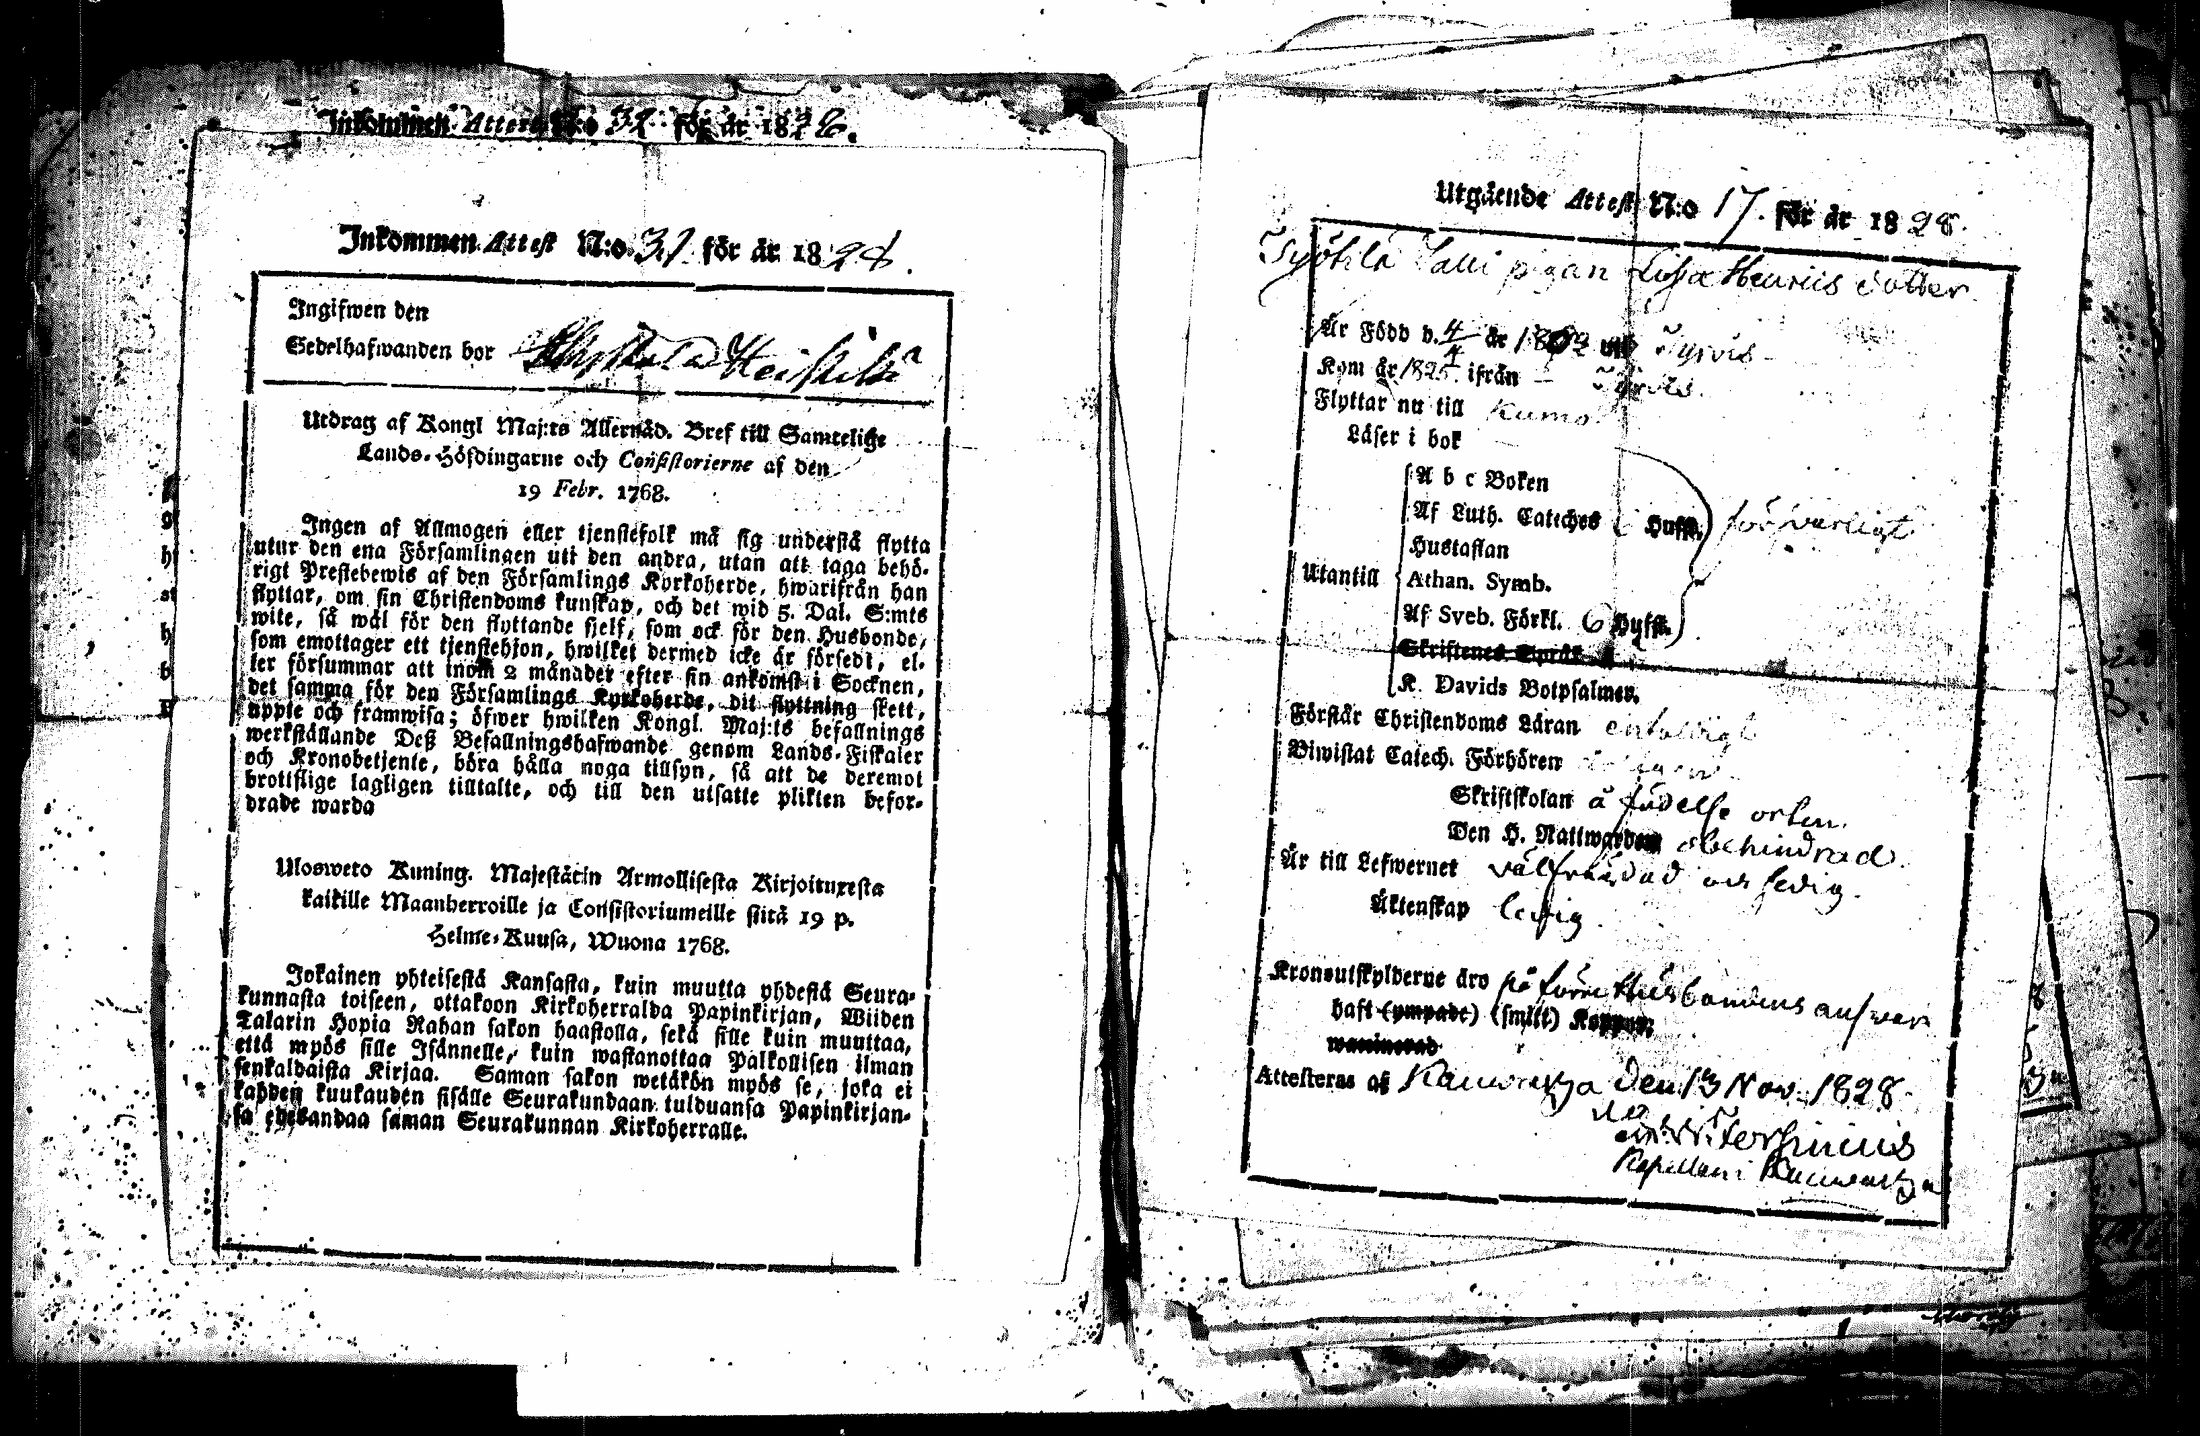 Inkommen Attest N:o 32 för år 1828.
Inkommen Attest N:o 31 för år 1828.
Ingifwen den
Sedelhafwanden bor Heikkilä
Utdrag af Kongl Maj:ts Allernåd. Bref till Samtelige
Lands-Höfdingarne och Consistorierne af den
19 Febr. 1768.
Ingen af Allmogen eller tjenstefolk må sig understå flytta
utur den ena Församlingen uti den andra, utan att taga behö-
rigt Prestebewis af den Församlings Kyrkoherde, hwarifrån han
flyttar, om sin Christendoms kunskap, och det wid 5. Dal. S:mts
wite, så wäl för den flyttande sjelf, som ock för den Husbonde,
som emottager ett tjenstehjon, hwilket dermed icke är försedt, el-
ler försummar att inom 2 månader efter sin ankomst i Socknen,
det samma för den Församlings Kyrkoherde, dit flyttning skett,
uppte och framwisa; öfwer hwilken Kongl. Maj:ts befallnings
werkställande Deß Befallningshafwande genom Lands-Fiskaler
och Kronobetjente, böra hålla noga tillsyn, så att de deremot
brottslige lagligen tilltalte, och till den utsatte plikten befor-
drade warda
Ulosweto Kuning. Majestätin Armollisesta Kirjoituxesta
kaikille Maanherroille ja Consistoriumeille siitä 19 p.
Helme-Kuusa, Wuona 1768.
Jokainen yhteisestä Kansasta, kuin muutta yhdestä Seura-
kunnasta toiseen, ottakoon Kirkoherralda Papinkirjan, Wiiden
Talarin Hopia Rahan sakon haastolla, sekä sille kuin muuttaa,
että myös sille Isännelle, kuin wastanottaa Palkollisen ilman
senkaldaista Kirjaa. Saman sakon wetäkön myös se, joka ei
kahden kuukauden sisälle Seurakundaan tulduansa Papinkirjan-
sa edesandaa saman Seurakunnan Kirkoherralle.
Utgäende Attest N:o 17. för år 1828.
Työtilä Talli pigan Lisa Henriks dotter
Är Född d. 4/4 år 1802 uti Tyrvis
Kom år 1825 ifrån Tyrvis.
Flyttar nu till Kumo
Läser i bok
A b c Boken
Af Luth. Cateches Hufst. försvarligt
Hustaflan
Utantill Athan. Symb.
Af Sveb. Förkl. 6 Hufst.
Skriftenes Språk
K. Davids Botpsalmer.
Förstår Christendoms Läran enfaldigt
Biwistat Catech. Förhören
Skriftskolan å födelse orten.
Den H. Nattwarden obehindrad.
Är till Lefwernet välfräjdad och ledig.
Äktenskap ledig
Kronoutskylderne äro på förra Husbondens answar
haft (ympade) (smitt) Koppor,
waccinerad
Attesteras af Kauwatza den 13 Nov. 1828.
Kapellan i Kauwatza